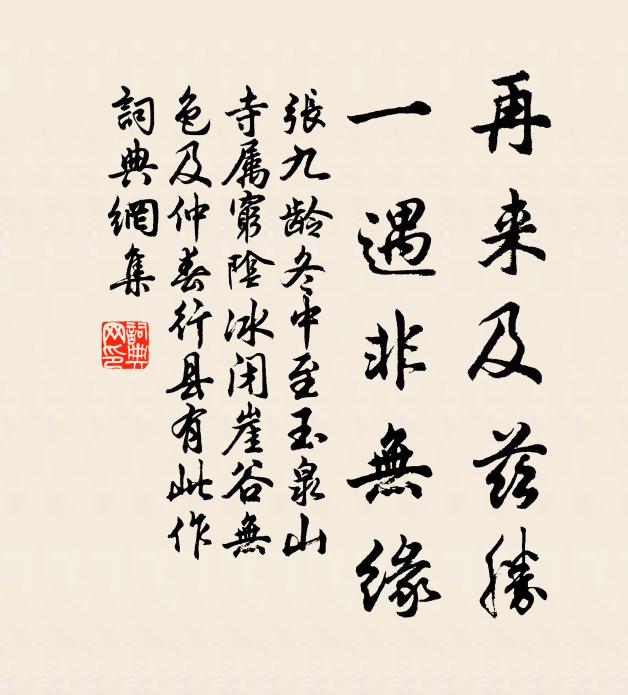 再来及茲勝
一遇非無緣
張九龄冬中至玉泉山
寺属窮陰冰闭崖谷無
色及仲春行县有此作
詞典網集
詞典網印